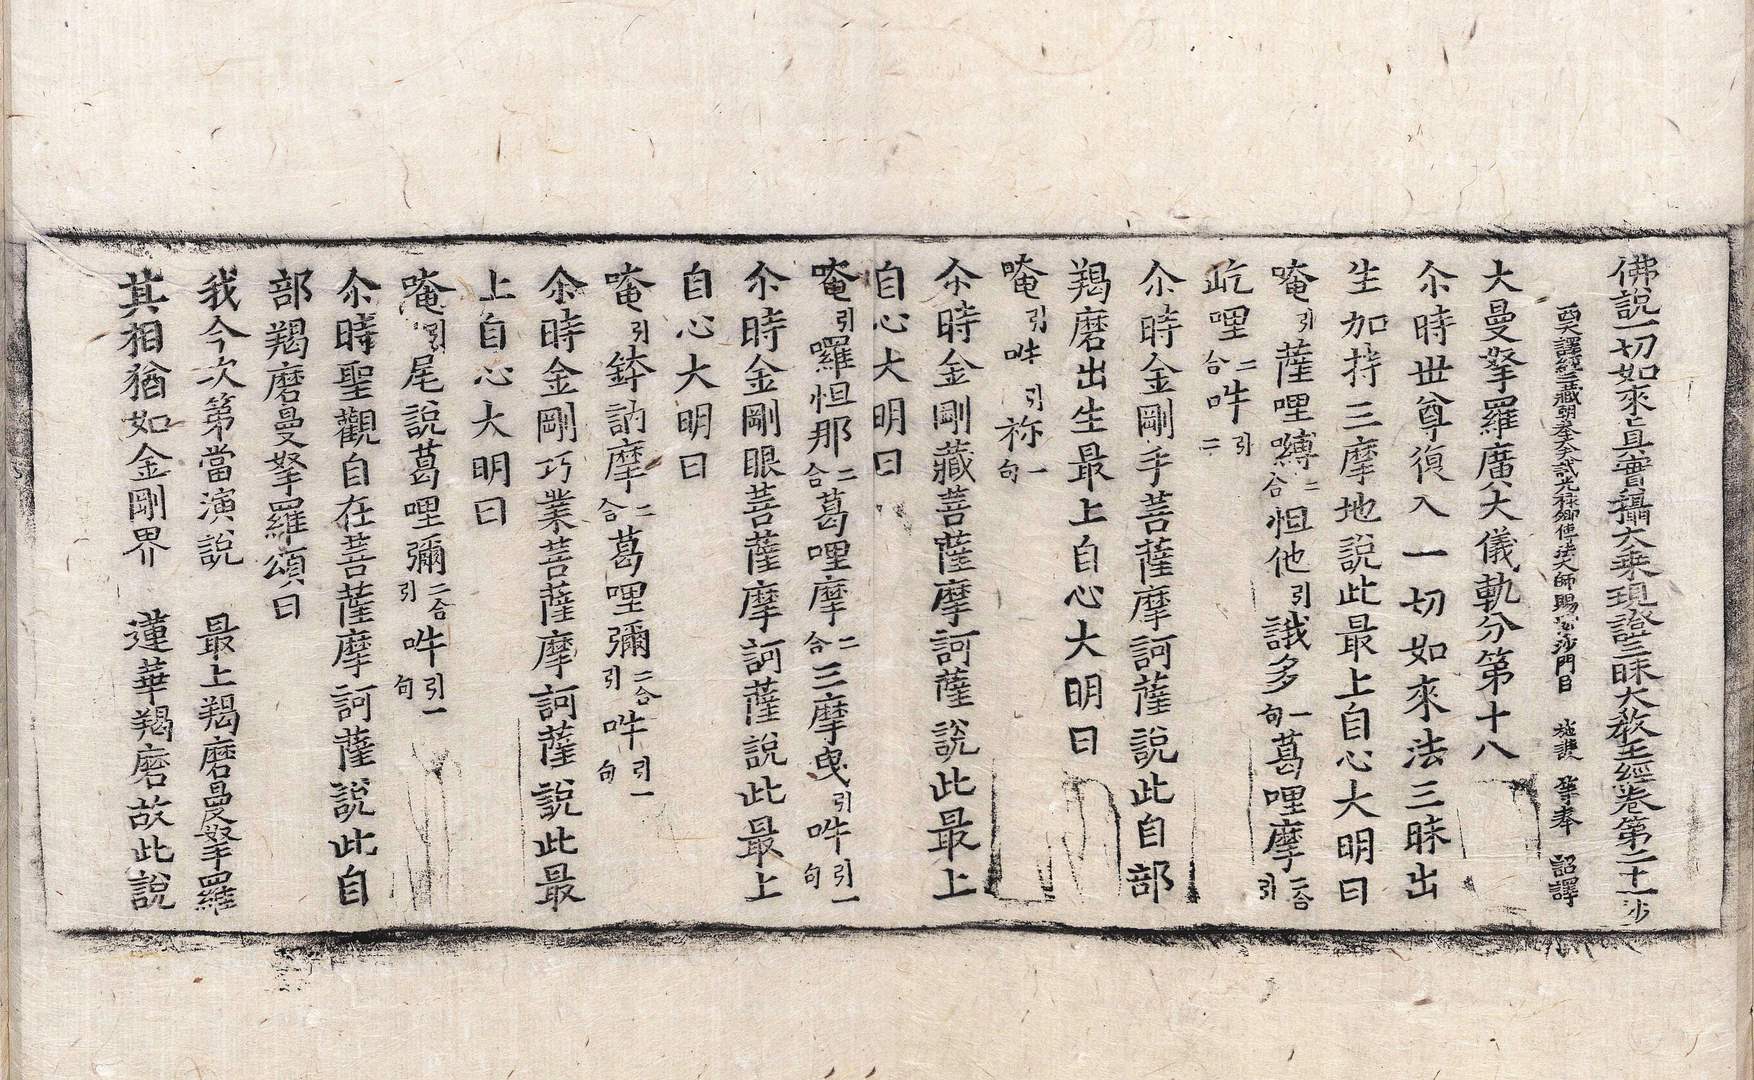 佛說一切如來真實攝大乘現證三昧大教王經卷第二十一 沙
西天譯經三藏朝奉大夫試光祿卿傳法大師賜紫沙門臣 施護 等奉 詔譯
大曼拏羅廣大儀軌分第十八
尒時世尊復入一切如來法三昧出
生加持三摩地說此最上自心大明曰
唵引薩哩嚩二合怛他引誐多一句葛哩摩二合引
屹哩二合吽引二
尒時金剛手菩薩摩訶薩說此自部
羯磨出生最上自心大明曰
唵引吽引祢一句
尒時金剛藏菩薩摩訶薩說此最上
自心大明曰
唵引囉怛那二合葛哩摩二合三摩曳引吽引一句
尒時金剛眼菩薩摩訶薩說此最上
自心大明曰
唵引鉢訥摩二合葛哩彌二合引吽引一句
尒時金剛巧業菩薩摩訶薩說此最
上自心大明曰
唵引尾說葛哩彌二合引吽引一句
尒時聖觀自在菩薩摩訶薩說此自
部羯磨曼拏羅頌曰
我今次第當演說 最上羯磨曼拏羅
其相猶如金剛界 蓮華羯磨故此說